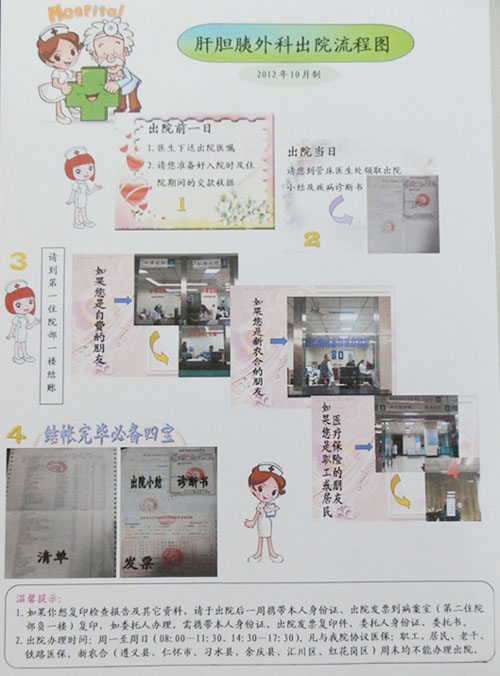 Hospital
肝胆胰外科出院流程图
2012年10月制
出院前一日
1.医生下达出院医嘱
2.请您准备好入院时及住
院期间的交款收据
1
出院当日
请您到管床医生处领取出院
小结及疾病诊断书
2
3
请到第一住院部一楼结账
如果您是自费的朋友
如果您是新农合的朋友
如果您是职工或居民
医疗保险的朋友
4
结帐完毕必备四宝
清单
出院小结
诊断书
发票
温馨提示:
1.如果你想复印检查报告及其它资料,请于出院后一周携带本人身份证、出院发票到病案室(第二住院
部负一楼)复印。如委托人办理,需携带本人身份证、出院发票复印件、委托人身份证、委托书。
2.出院办理时间:周一至周日(08:00—11:30,14:30—17:30),凡与我院协议医保:职工、居民、老干、
铁路医保、新农合(遵义县、仁怀市、习水县、余庆县、汇川区、红花岗区)周末均不能办理出院。